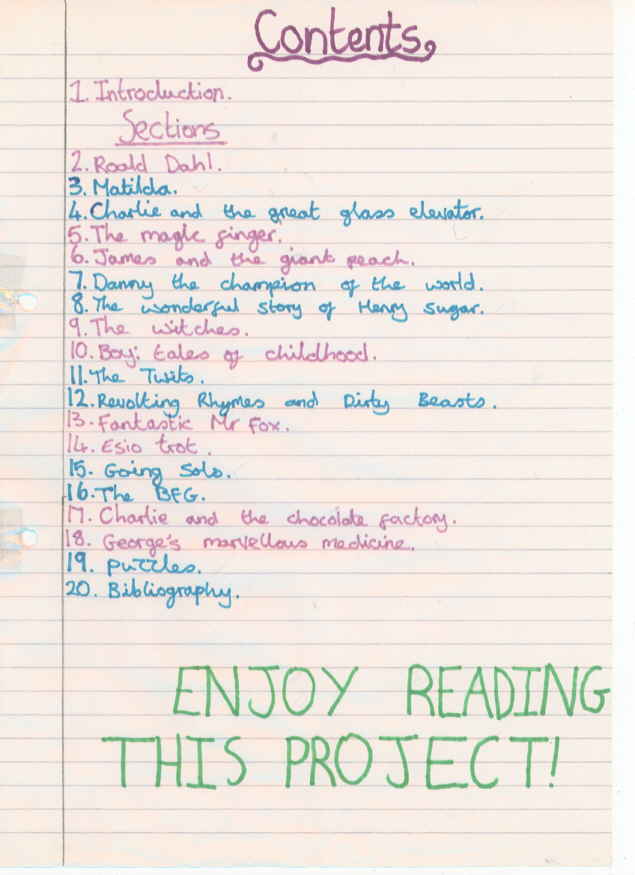 Contents
1. Introduction.
Sections
2. Roald Dahl.
3. Matilda.
4. Charlie and the great glass elevator.
5. The magic finger.
6. James and the giant peach.
7. Danny the champion of the world.
8. The wonderful story of Henry Sugar.
9. The witches.
10. Boy: tales of childhood.
11. The Twits.
12. Revolting Rhymes and Dirty Beasts.
13. Fantastic Mr Fox.
14. Esio trot.
15. Going Solo.
16. The BFG.
17. Charlie and the chocolate factory.
18. George's marvellous medicine.
19. Puzzles.
20. Bibliography.
ENJOY READING
THIS PROJECT!